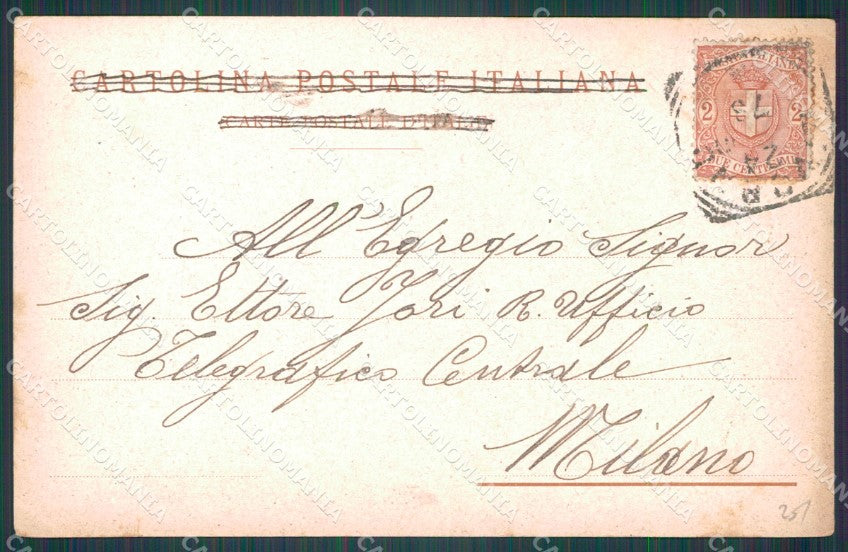 CARTOLINA POSTALE ITALIANA
CARTE POSTALE D'ITALIE
2 2
DUE CENTESIMI
All'Egregio Signor
Sig. Ettore Jori R. Ufficio
Telegrafico Centrale
Milano
25/
CARTOLINOMANIA